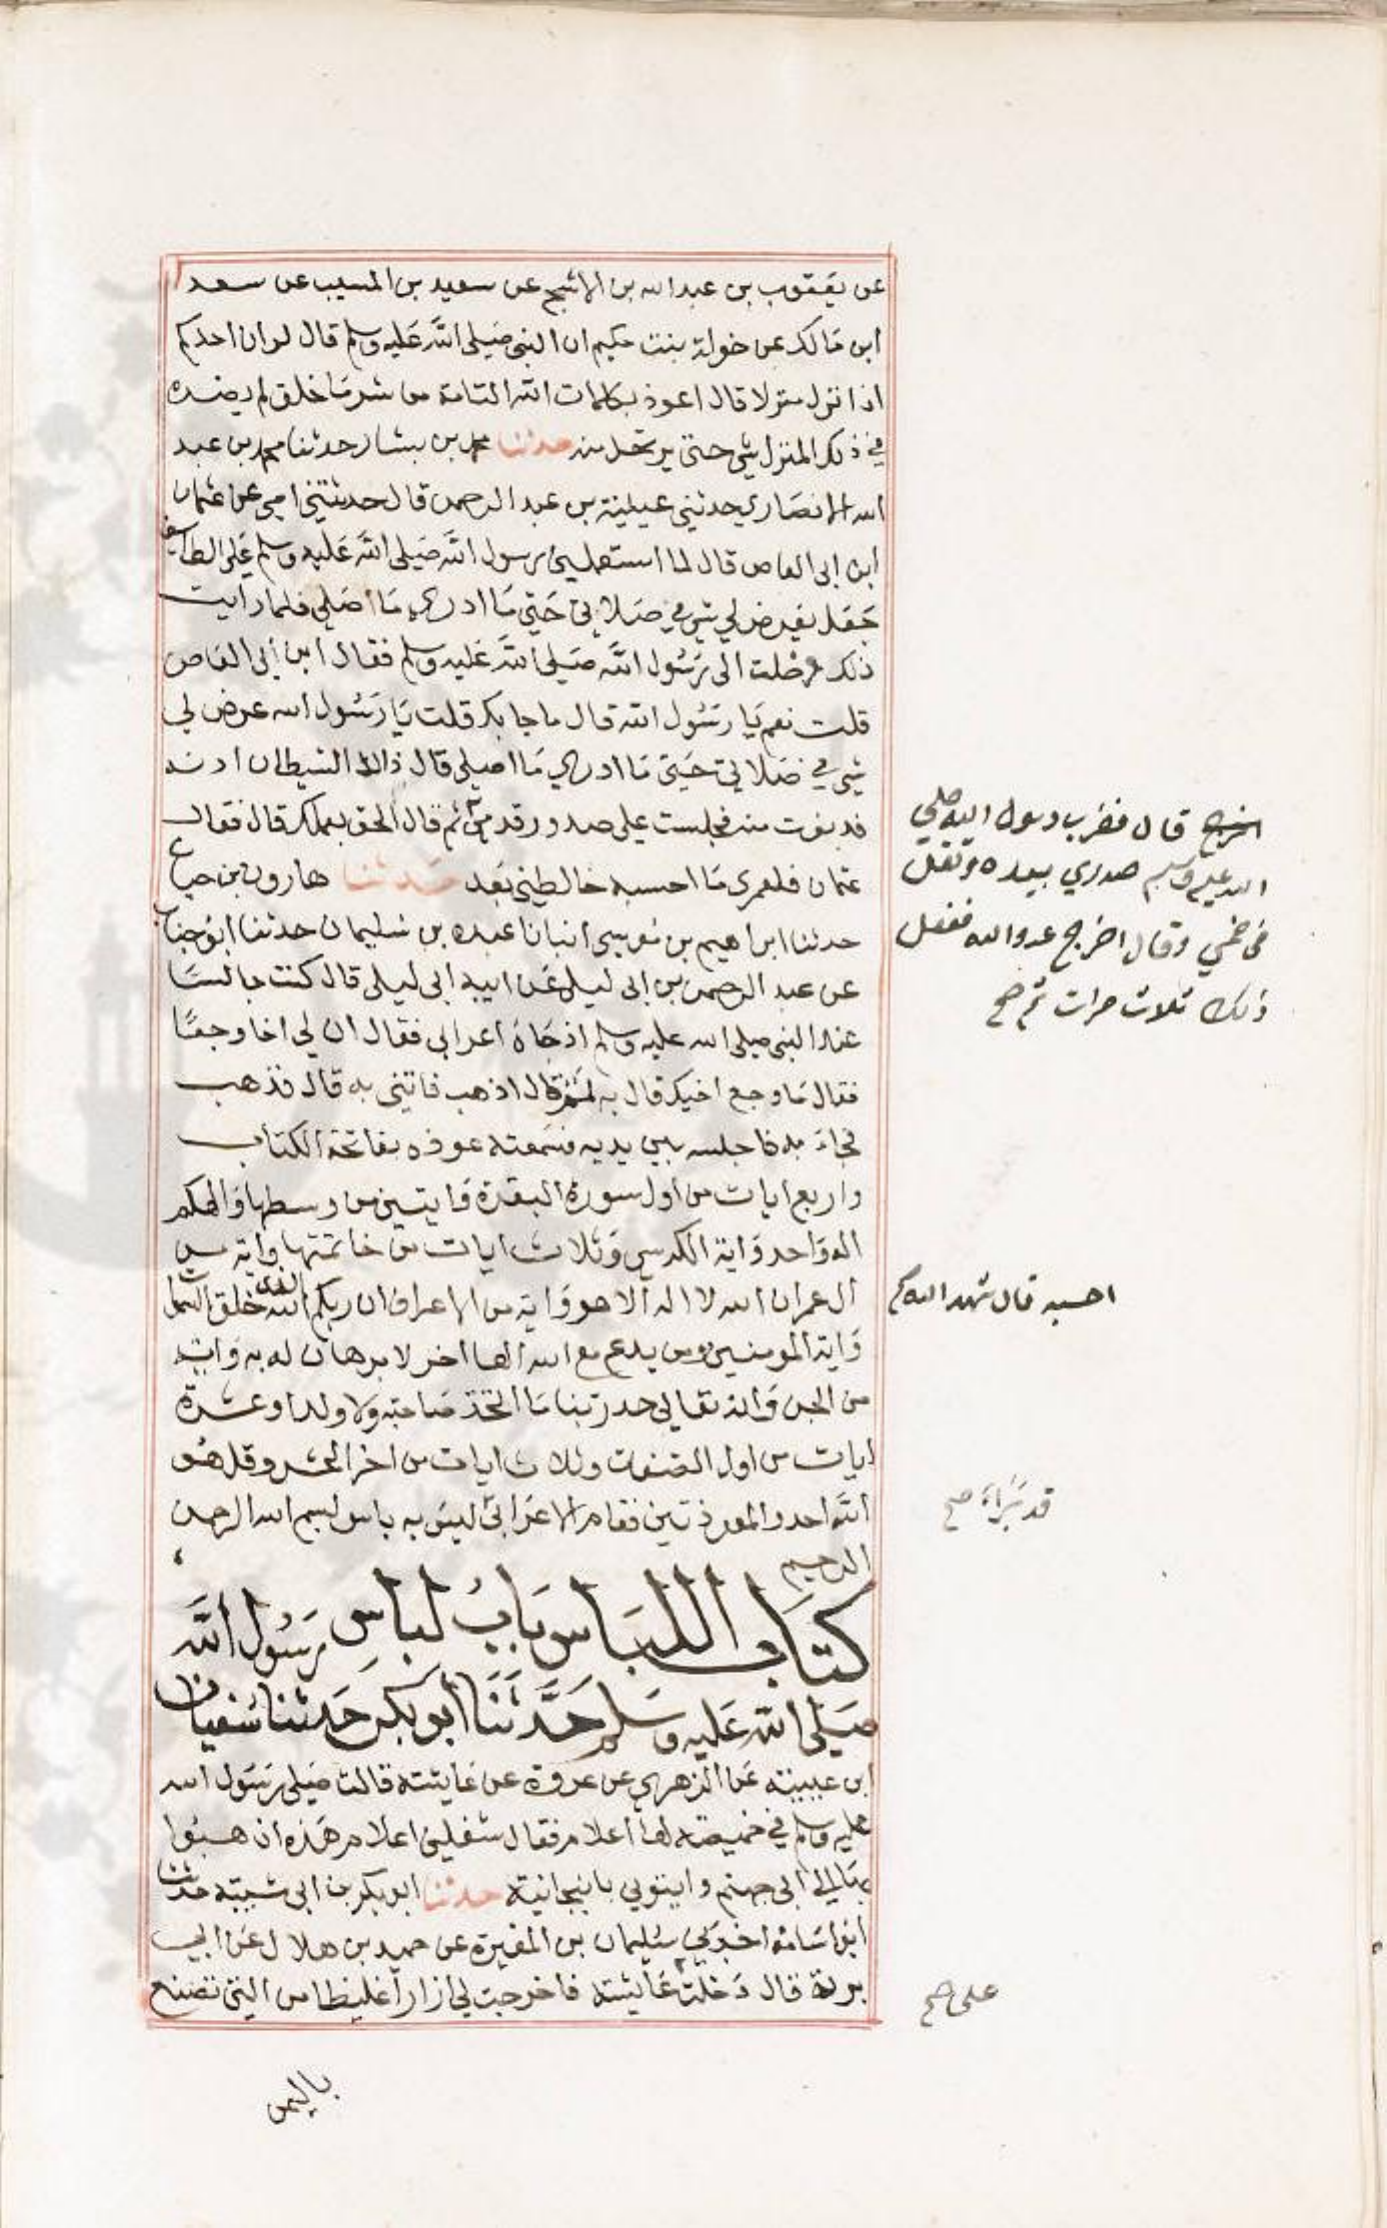 عن يعقوب بن عبد الله بن الاشج عن سعيد بن المسيب عن سعد
ابن مالك عن خولة بنت حكيم ان النبي صلى الله عليه وسلم قال لو ان احدكم
اذا نزل منزلا قال اعوذ بكلمات الله التامة من شر ما خلق لم يضره
في ذلك المنزل شي حتى يرتحل منه حدثنا محمد بن بشار حدثنا محمد بن عبد
الله الانصاري حدثني عيينة بن عبد الرحمن قال حدثتني امي عن عثمان
ابن ابي العاص قال لما استعملني رسول الله صلى الله عليه وسلم على الطائف
جعل يعرض لي شي في صلاتي حتى ما ادري ما اصلي فلما رايت
ذلك رحلت الى رسول الله صلى الله عليه وسلم فقال ابن ابي العاص
قلت نعم يا رسول الله قال ما جا بك قلت يا رسول الله عرض لي
شي في صلاتي حتى ما ادري ما اصلي قال ذاك الشيطان ادنه
فدنوت منه فجلست على صدور قدمي ثم قال الحق بعملك قال فقال
عثمان فلعمري ما احسبه خالطني بعد حدثنا هارون بن حياع
حدثنا ابراهيم بن موسى انبانا عبده بن سليمان حدثنا ابو جناب
عن عبد الرحمن بن ابي ليلى عن ابيه ابي ليلى قال كنت جالسا
عند النبي صلى الله عليه وسلم اذ جاه اعرابي فقال ان لي اخا وجعا
فقال ما وجع اخيك قال به لمم قال اذهب فاتني به قال فذهب
فجاء به فاجلسه بين يديه فسمعته عوذه بفاتحة الكتاب
واربع ايات من اول سورة البقرة وايتين من وسطها والهكم
اله واحد واية الكرسي وثلاث ايات من خاتمتها واية من
ال عمران الله لا اله الا هو واية من الاعراف ان ربكم الله الذي خلق السموات
واية المومنين ومن يدع مع الله الها اخر لا برهان له به واية
من الجن وانه تعالى جد ربنا ما اتخذ صاحبة ولا ولدا وعشرة
ايات من اول الصفات وثلاث ايات من اخر الحشر وقل هو
الله احد والمعوذتين فقام الاعرابي ليس به باس بسم الله الرحمن
الرحيم
كتاب اللباس باب لباس رسول الله
صلى الله عليه وسلم حدثنا ابو بكر حدثنا سفيان
ابن عيينة عن الزهري عن عروة عن عايشة قالت صلى رسول الله
عليه وسلم في خميصة لها اعلام فقال شغلني اعلام هذه اذهبوا
بها الى ابي جهم وايتوني بانبجانية حدثنا ابو بكر بن ابي شيبة حدثنا
ابو اسامة اخبرني سليمان بن المغيرة عن حميد بن هلال عن ابي
بردة قال دخلت عايشة فاخرجت لي ازارا غليظا من التي تصنع
باليمن
اخرج قال فضرب رسول الله صلى
الله عليه وسلم صدري بيده وتفل
في فمي وقال اخرج عدو الله ففعل
ذلك ثلاث مرات ثم صح
احسبه قال شهد الله
قد براء صح
على صح